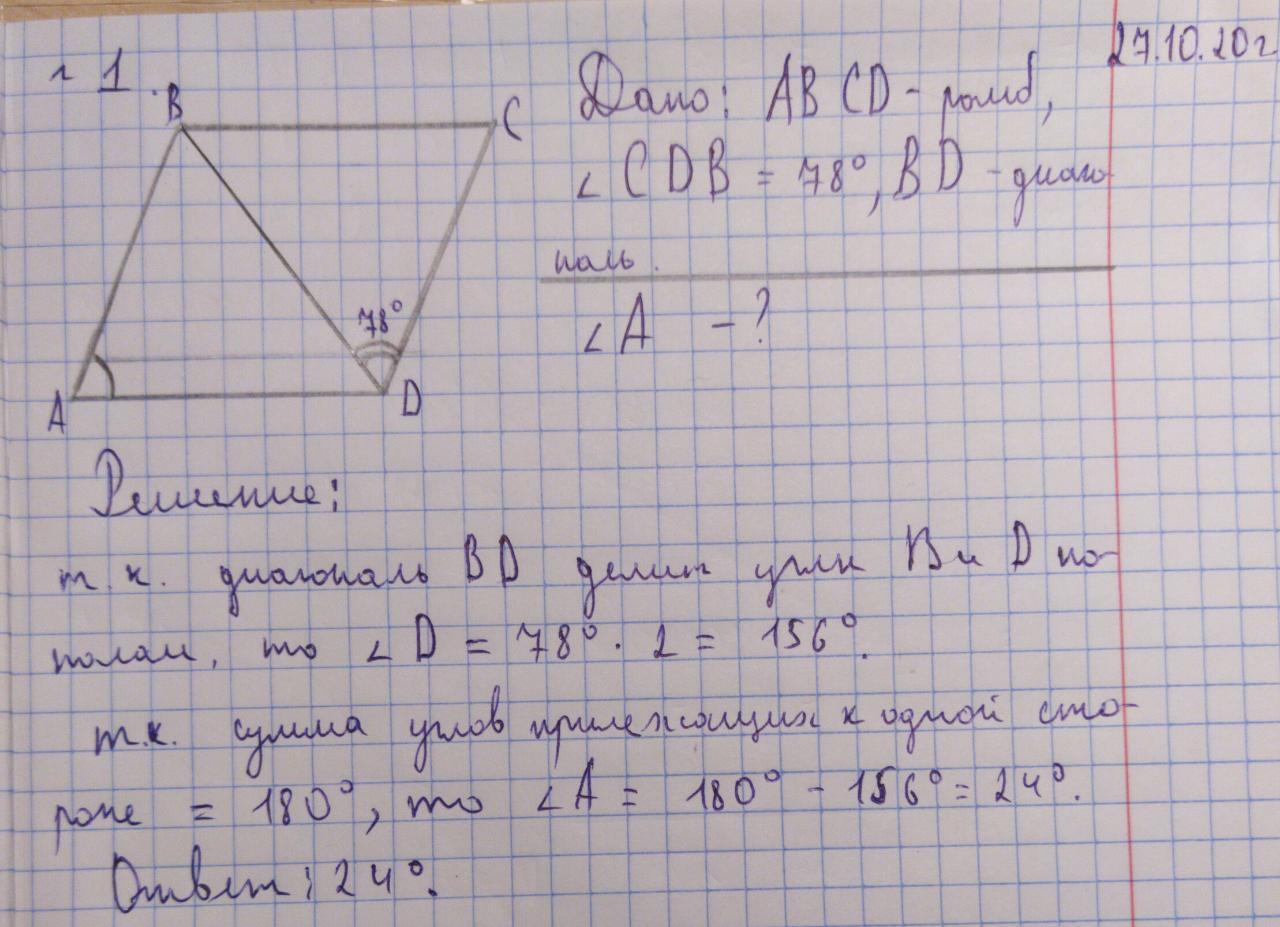 27.10.20г
№ 1.
B
C
78°
A
D
Дано: ABCD - ромб,
∠CDB = 78°, BD - диаго
наль.
∠A - ?
Решение:
т.к. диагональ BD делит углы B и D по-
полам, то ∠D = 78° · 2 = 156°.
т.к. сумма углов прилежащих к одной сто-
роне = 180°, то ∠A = 180° - 156° = 24°.
Ответ: 24°.